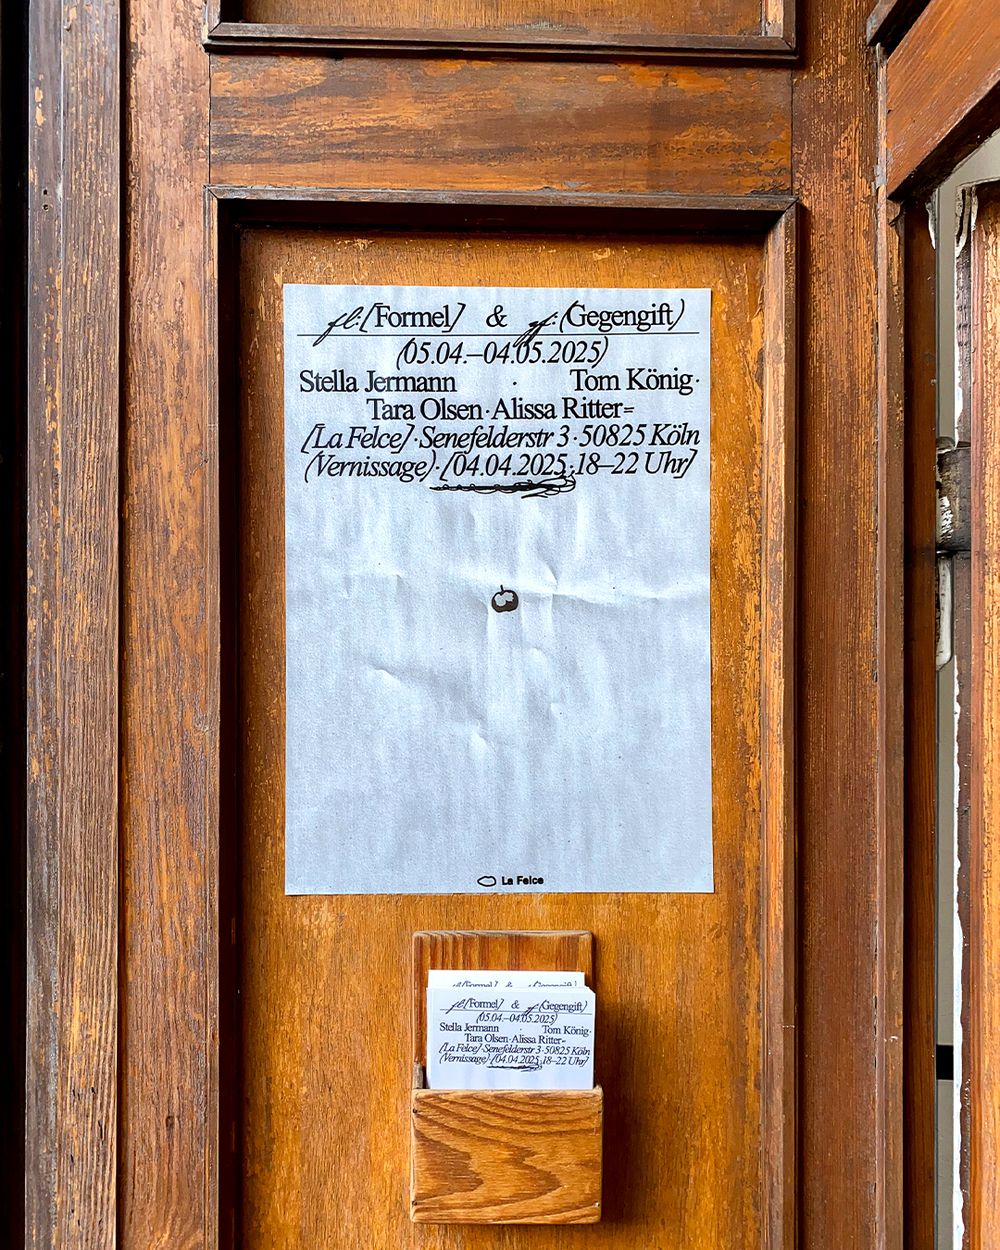 fl:[Formel] & gf:(Gegengift)
(05.04.–04.05.2025)
Stella Jermann · Tom König·
Tara Olsen·Alissa Ritter=
[La Felce]·Senefelderstr 3·50825 Köln
(Vernissage)·[04.04.2025·18–22 Uhr]
La Felce
fl:[Formel] & gf:(Gegengift)
fl:[Formel] & gf:(Gegengift)
(05.04.–04.05.2025)
Stella Jermann · Tom König·
Tara Olsen·Alissa Ritter=
[La Felce]·Senefelderstr 3·50825 Köln
(Vernissage)·[04.04.2025·18–22 Uhr]